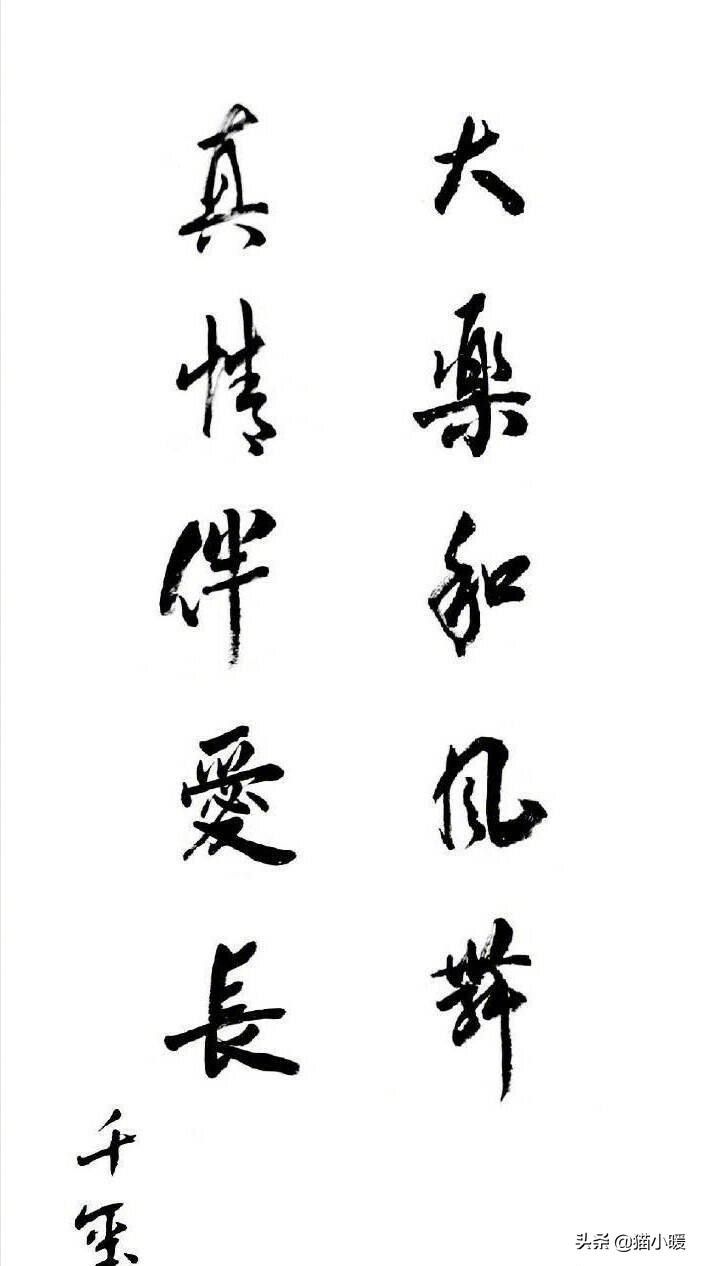 大樂和風舞
真情伴愛長
千玺
头杀@猫小暖